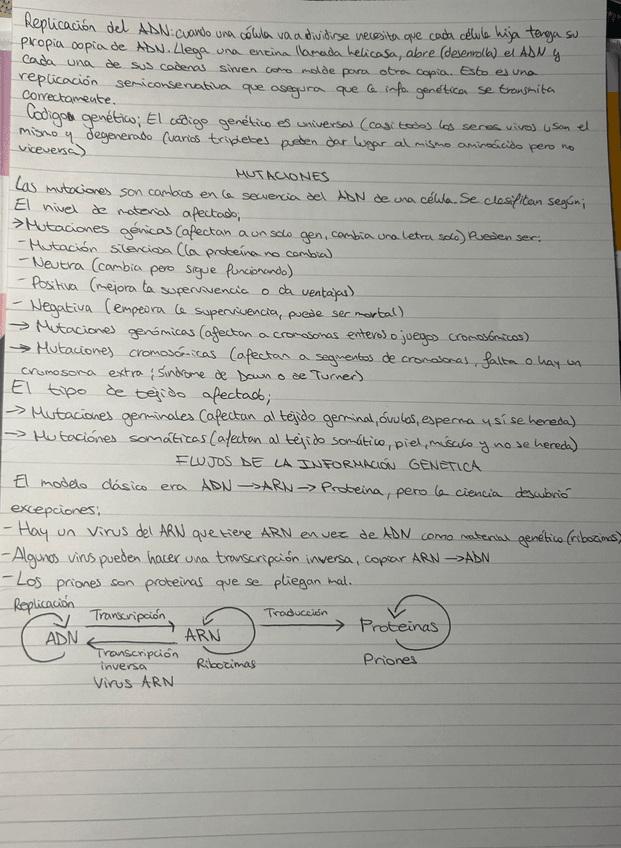 Replicación del ADN: cuando una célula va a dividirse necesita que cada célula hija tenga su
propia copia de ADN. Llega una encina llamada helicasa, abre (desenrolla) el ADN y
cada una de sus cadenas sirven como molde para otra copia. Esto es una
replicación semiconservativa que asegura que la info genética se transmita
correctamente.
Codigo genético; El código genético es universal (casi todos los seres vivos usan el
mismo y degenerado (varios tripletes pueden dar lugar al mismo aminoácido pero no
viceversa)
MUTACIONES
Las mutaciones son cambios en la secuencia del ADN de una célula. Se clasifican según;
El nivel de material afectado;
→Mutaciones génicas (afectan a un solo gen, cambia una letra solo) Pueden ser:
- Mutación silenciosa (la proteína no cambia)
- Neutra (cambia pero sigue funcionando)
- Positiva (mejora la supervivencia o da ventajas)
- Negativa (empeora la supervivencia, puede ser mortal)
→ Mutaciones genómicas (afectan a cromosomas enteros o juegos cromosómicos)
→ Mutaciones cromosómicas (afectan a segmentos de cromosomas, falta o hay un
cromosoma extra; Síndrome de Down o de Turner)
El tipo de tejido afectado;
→ Mutaciones germinales (afectan al tejido germinal, óvulos, esperma y sí se hereda)
→ Mutaciónes somáticas (afectan al tejido somático, piel, músculo y no se hereda)
FLUJOS DE LA INFORMACIÓN GENÉTICA
El modelo clásico era ADN → ARN → Proteína, pero la ciencia descubrió
excepciones;
- Hay un virus del ARN que tiene ARN en vez de ADN como material genético (ribozimas)
- Algunos virus pueden hacer una transcripción inversa, copiar ARN → ADN
- Los priones son proteinas que se pliegan mal.
Replicación
Transcripción
Traducción
ADN
ARN
Proteínas
Transcripción
inversa
Ribozimas
Priones
Virus ARN